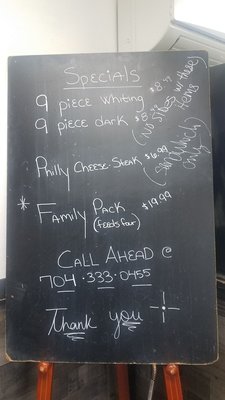 Specials
9 piece whiting $8.99
9 piece dark $8.99
(No sides w/these items
Philly Cheese-Steak $10.99
(Sandwich only)
* Family Pack $19.99
(feeds four)
Call Ahead @
704·333·0455
Thank you